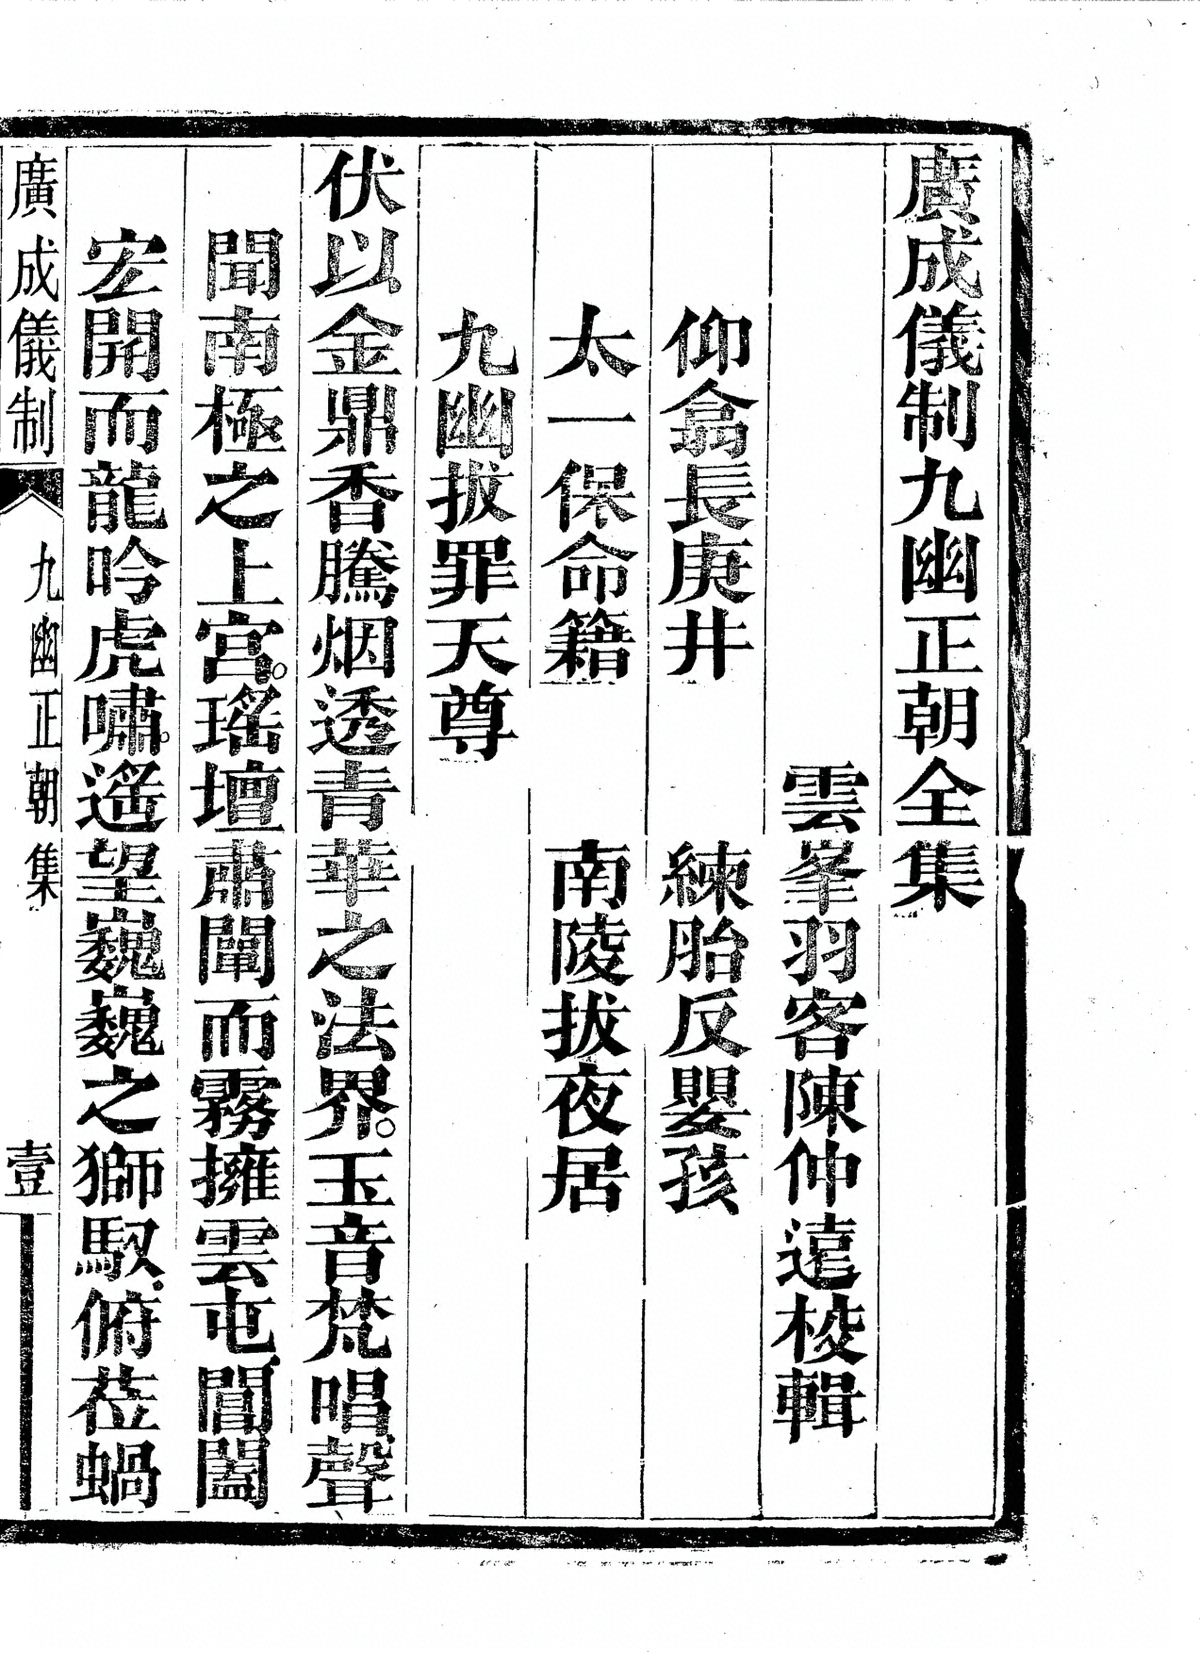 廣成儀制九幽正朝全集
雲峯羽客陳仲遠校輯
仰翕長庚井　練胎反嬰孩
太一保命籍　南陵拔夜居
九幽拔罪天尊
伏以金鼎香騰烟透青華之法界。玉音梵唱聲
聞南極之上宮。瑤壇肅闈而霧擁雲屯閶闔
宏開而龍吟虎嘯。遥望巍巍之獅馭。俯莅蝸
廣成儀制　九幽正朝集　壹